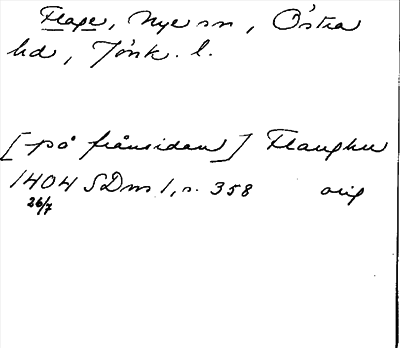 Flaxe, Nye sn, Östra
hd, Jönk. l.
[på frånsidan] Flaughu
1404 SDns 1, n. 358 orig
26/7